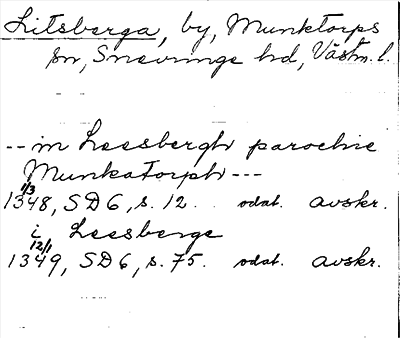 Litsberga, by, Munktorps
sn, Snevringe hd, Västm. l.
-- in Lessbergh parochie
Munkatorph ---
1/3
1348, SD 6, s. 12. odat. avskr.
i Lessberge
12/1
1349, SD 6, s. 75. odat. avskr.